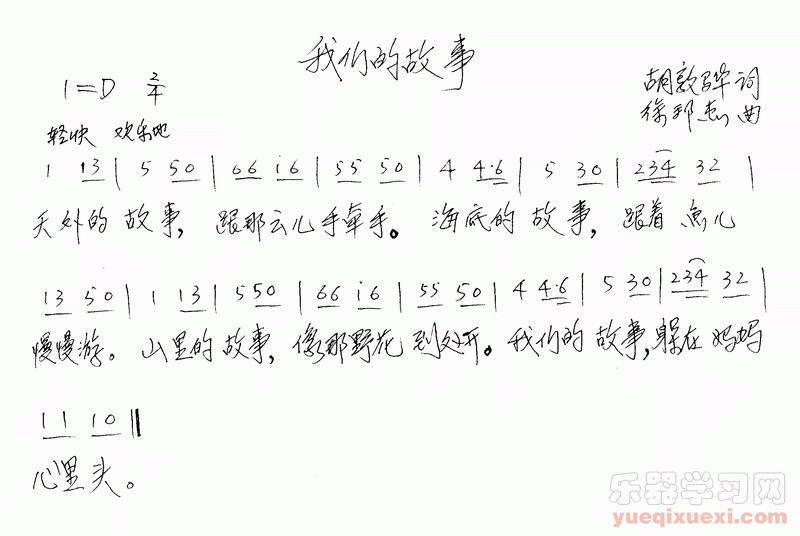 我们的故事
1=D 2/4
胡敦骅 词
徐邦杰 曲
轻快 欢乐地
1 13 | 5 50 | 66 i6 | 55 50 | 4 4·6 | 5 30 | 234 32 |
天外的故事，跟那云儿手牵手。海底的故事，跟着鱼儿
13 50 | 1 13 | 5 50 | 66 i6 | 55 50 | 4 4·6 | 5 30 | 234 32 |
慢慢游。山里的故事，像那野花到处开。我们的故事，躲在妈妈
11 10 ‖
心里头。
乐器学习网
yueqixuexi.com